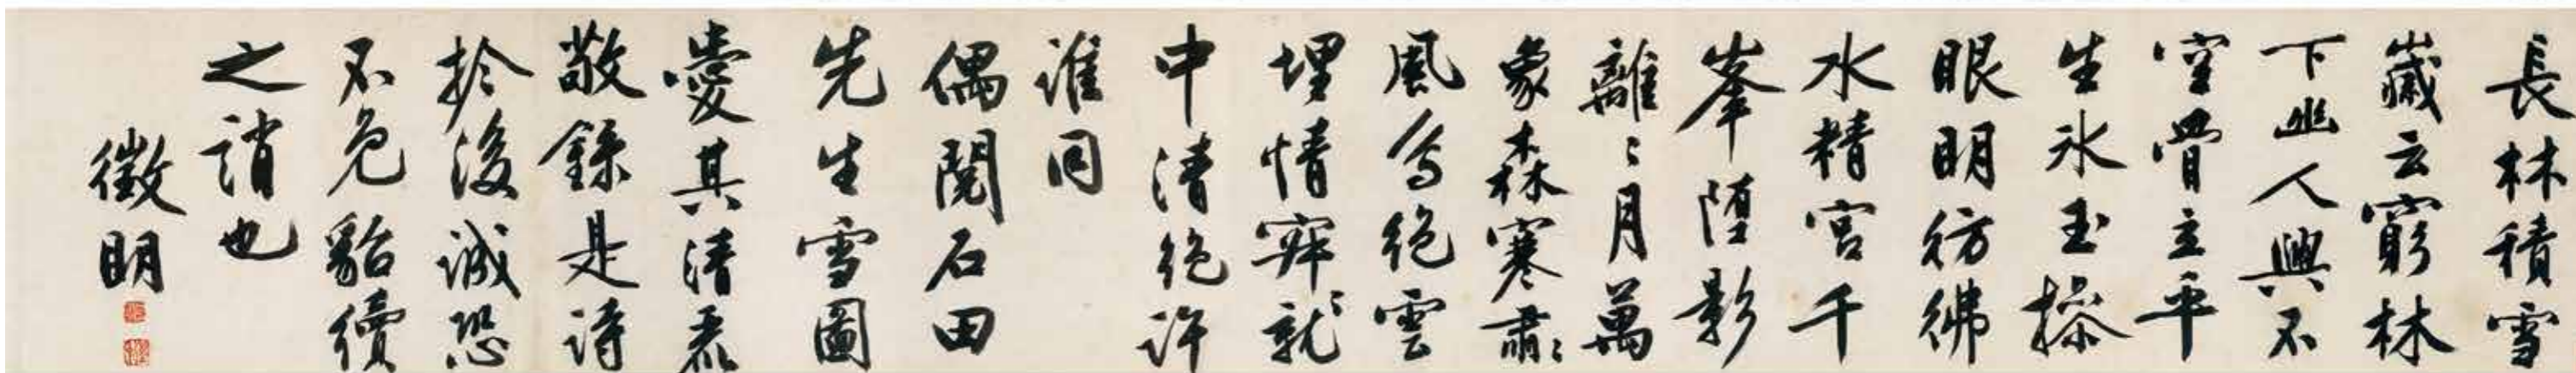 長林積雪
歲云窮林
下幽人興不
空骨立平
生氷玉操
眼明彷彿
水精宮千
峯堕影
離〻月萬
象森寒肅〻
風鳥絶雲
埋情寂〻就
中清絶許
誰同
偶閲石田
先生雪圖
愛其清
敬錄是詩
於後誠恐
不免貂續
之誚也
徵明